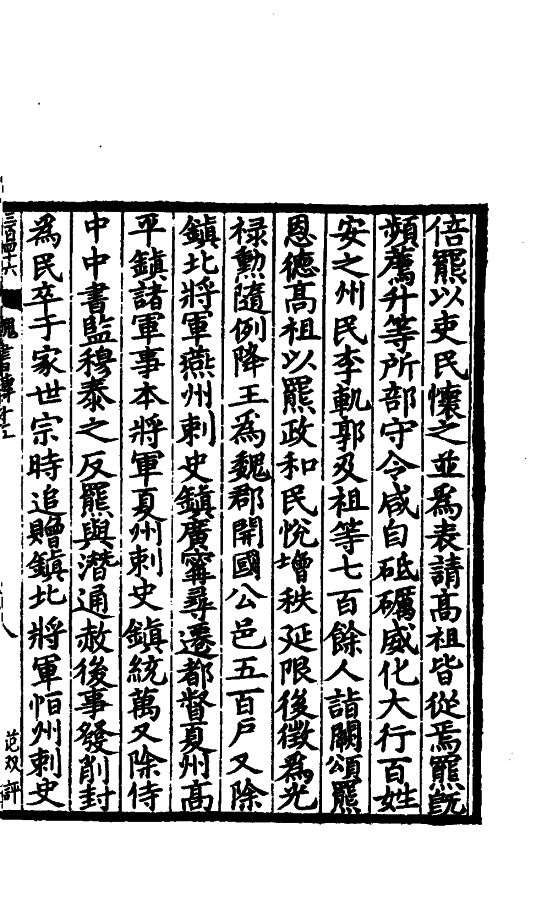 倍羆以吏民懷之並為表請高祖皆從焉羆既
頻薦升等所部守令咸自砥礪威化大行百姓
安之州民李軌郭及祖等七百餘人詣闕頌羆
恩德高祖以羆政和民悅增秩延限後徵為光
禄勲隨例降王為魏郡開國公邑五百戶又除
鎮北將軍燕州刺史鎮廣甯尋遷都督夏州高
平鎮諸軍事本將軍夏州刺史鎮統萬又除侍
中中書監穆泰之反羆與潛通赦後事發削封
為民卒于家世宗時追贈鎮北將軍恒州刺史
三百四十六 魏書傳十五 范双評